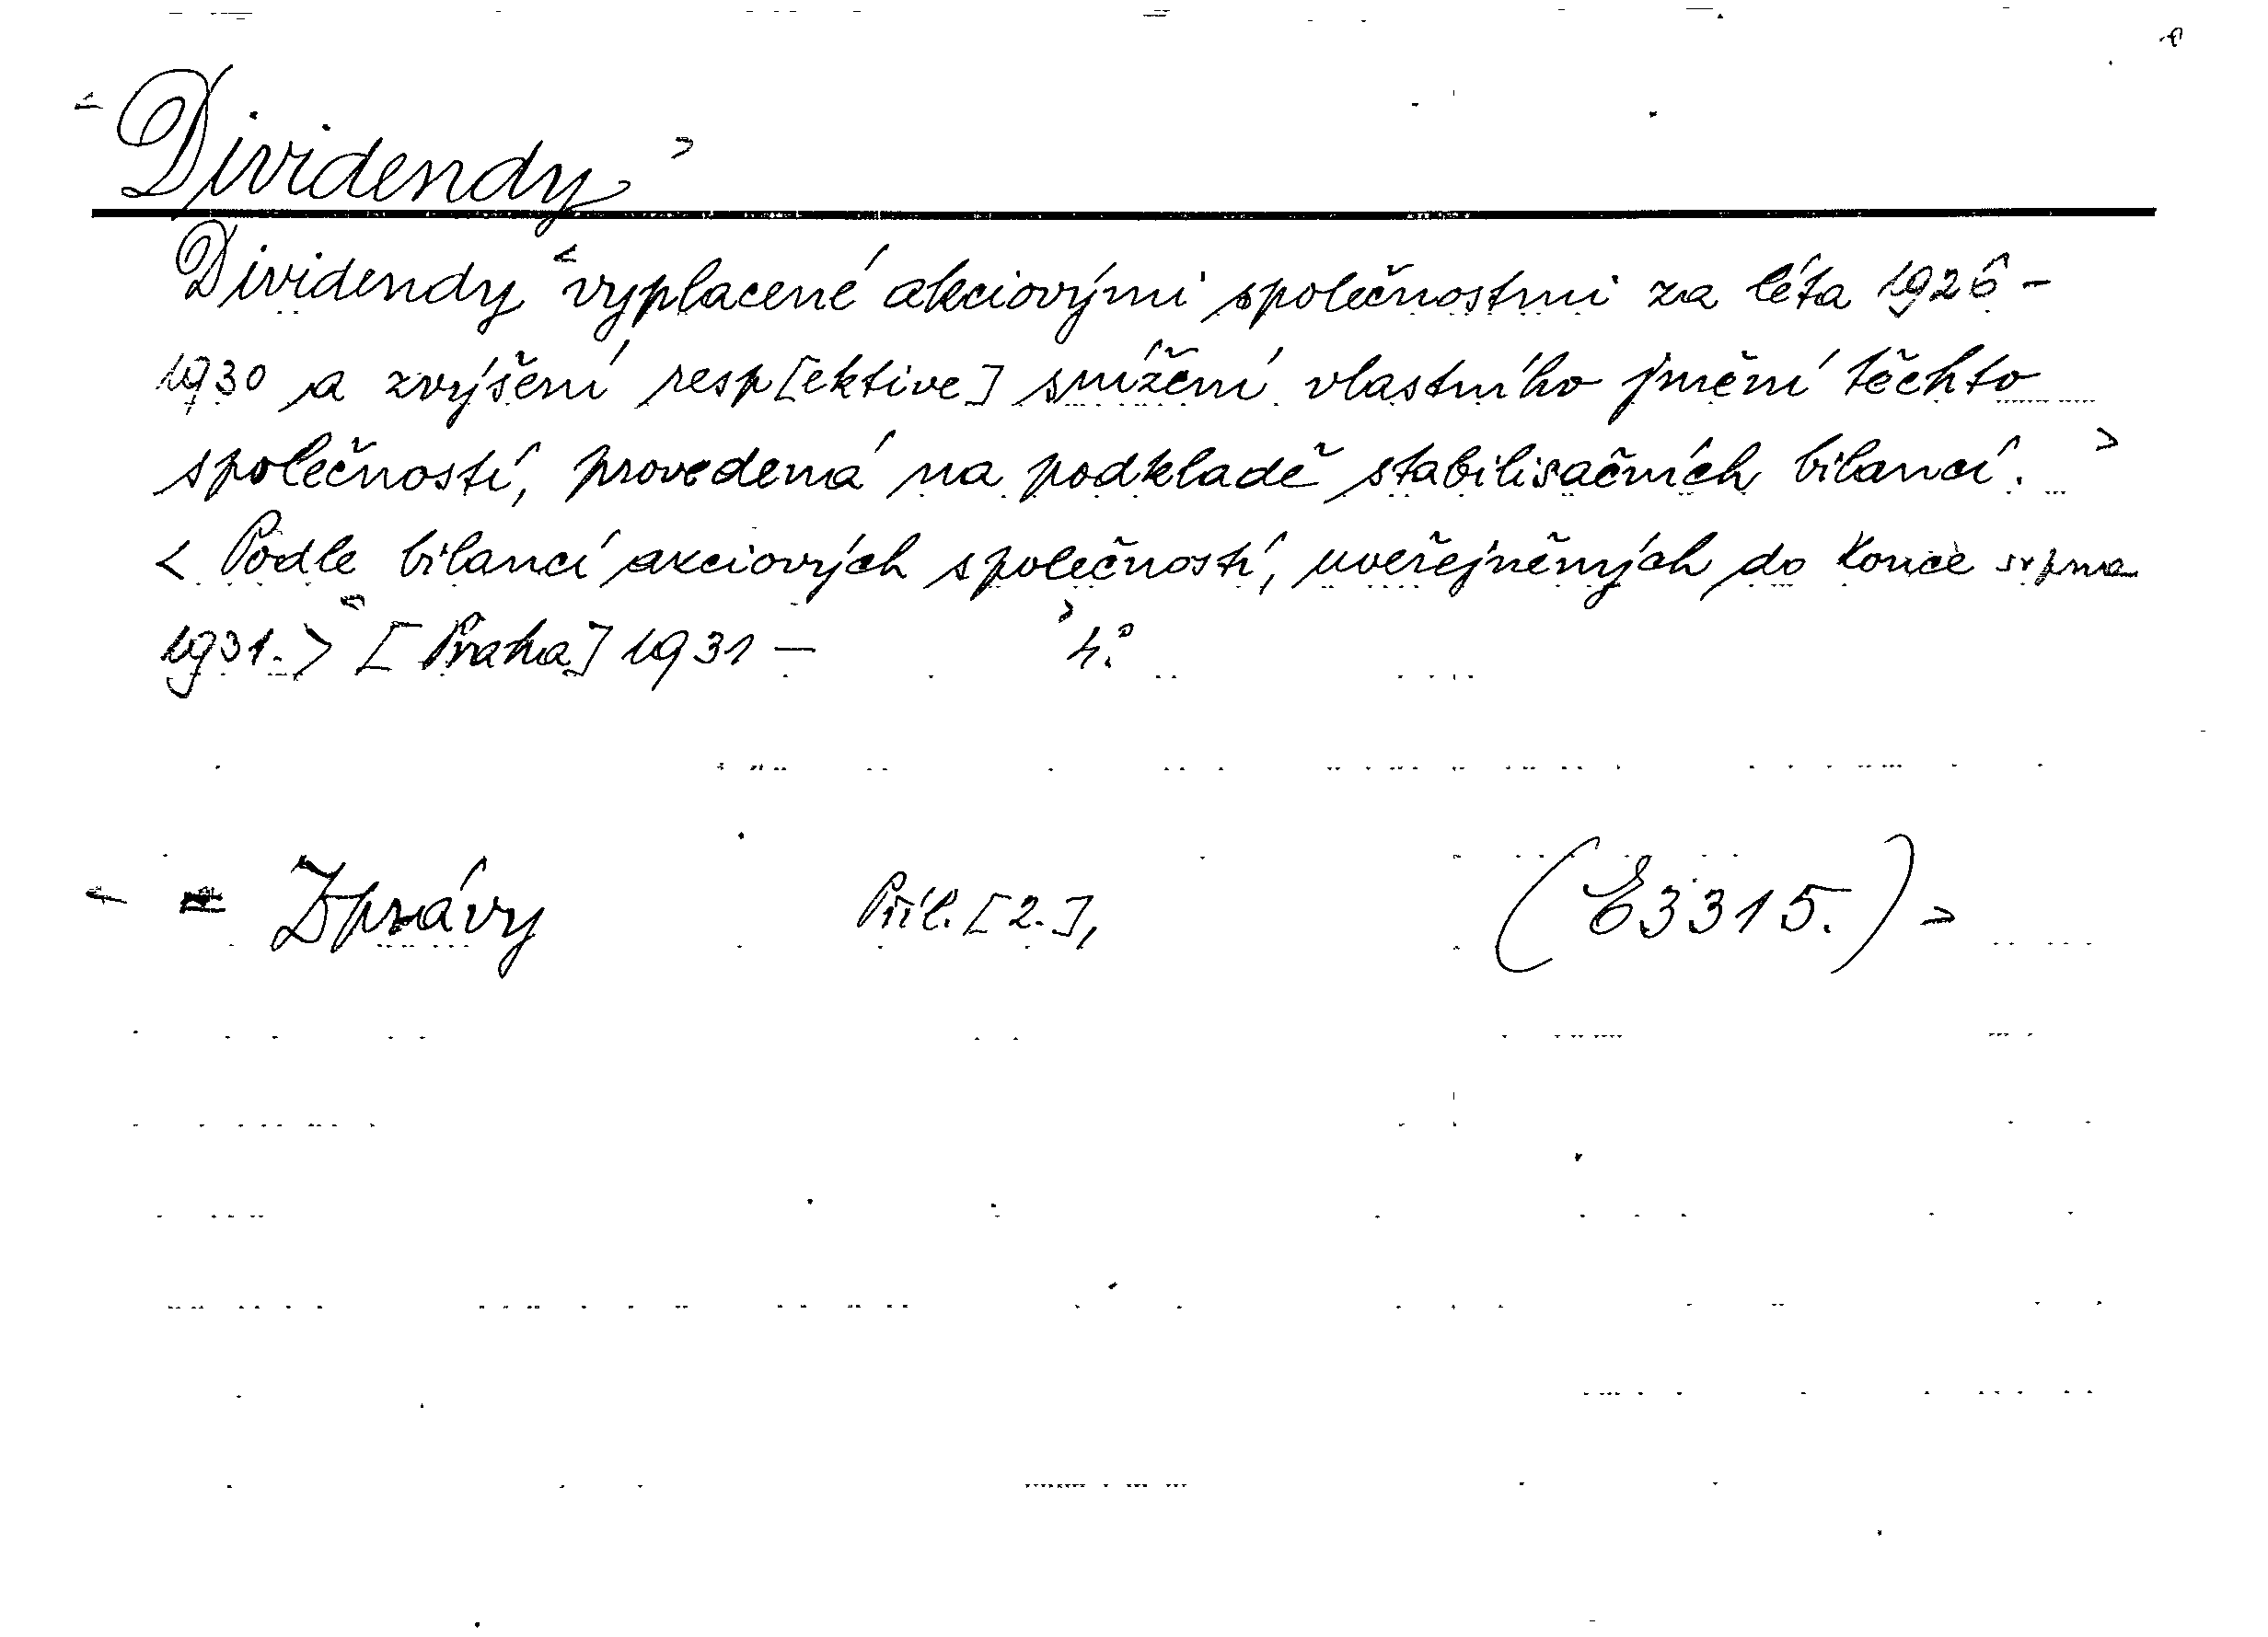 < Dividendy >
Dividendy < vyplacené akciovými společnostmi za léta 1926 -
1930 a zvýšení resp[ektive] snížení vlastního jmění těchto
společností, provedená na podkladě stabilisačních bilancí. >
< Podle bilancí akciových společností, uveřejněných do konce srpna
1931. > [Praha] 1931 — 4°.
< = Zprávy Příl. [2.], (E3315.) >